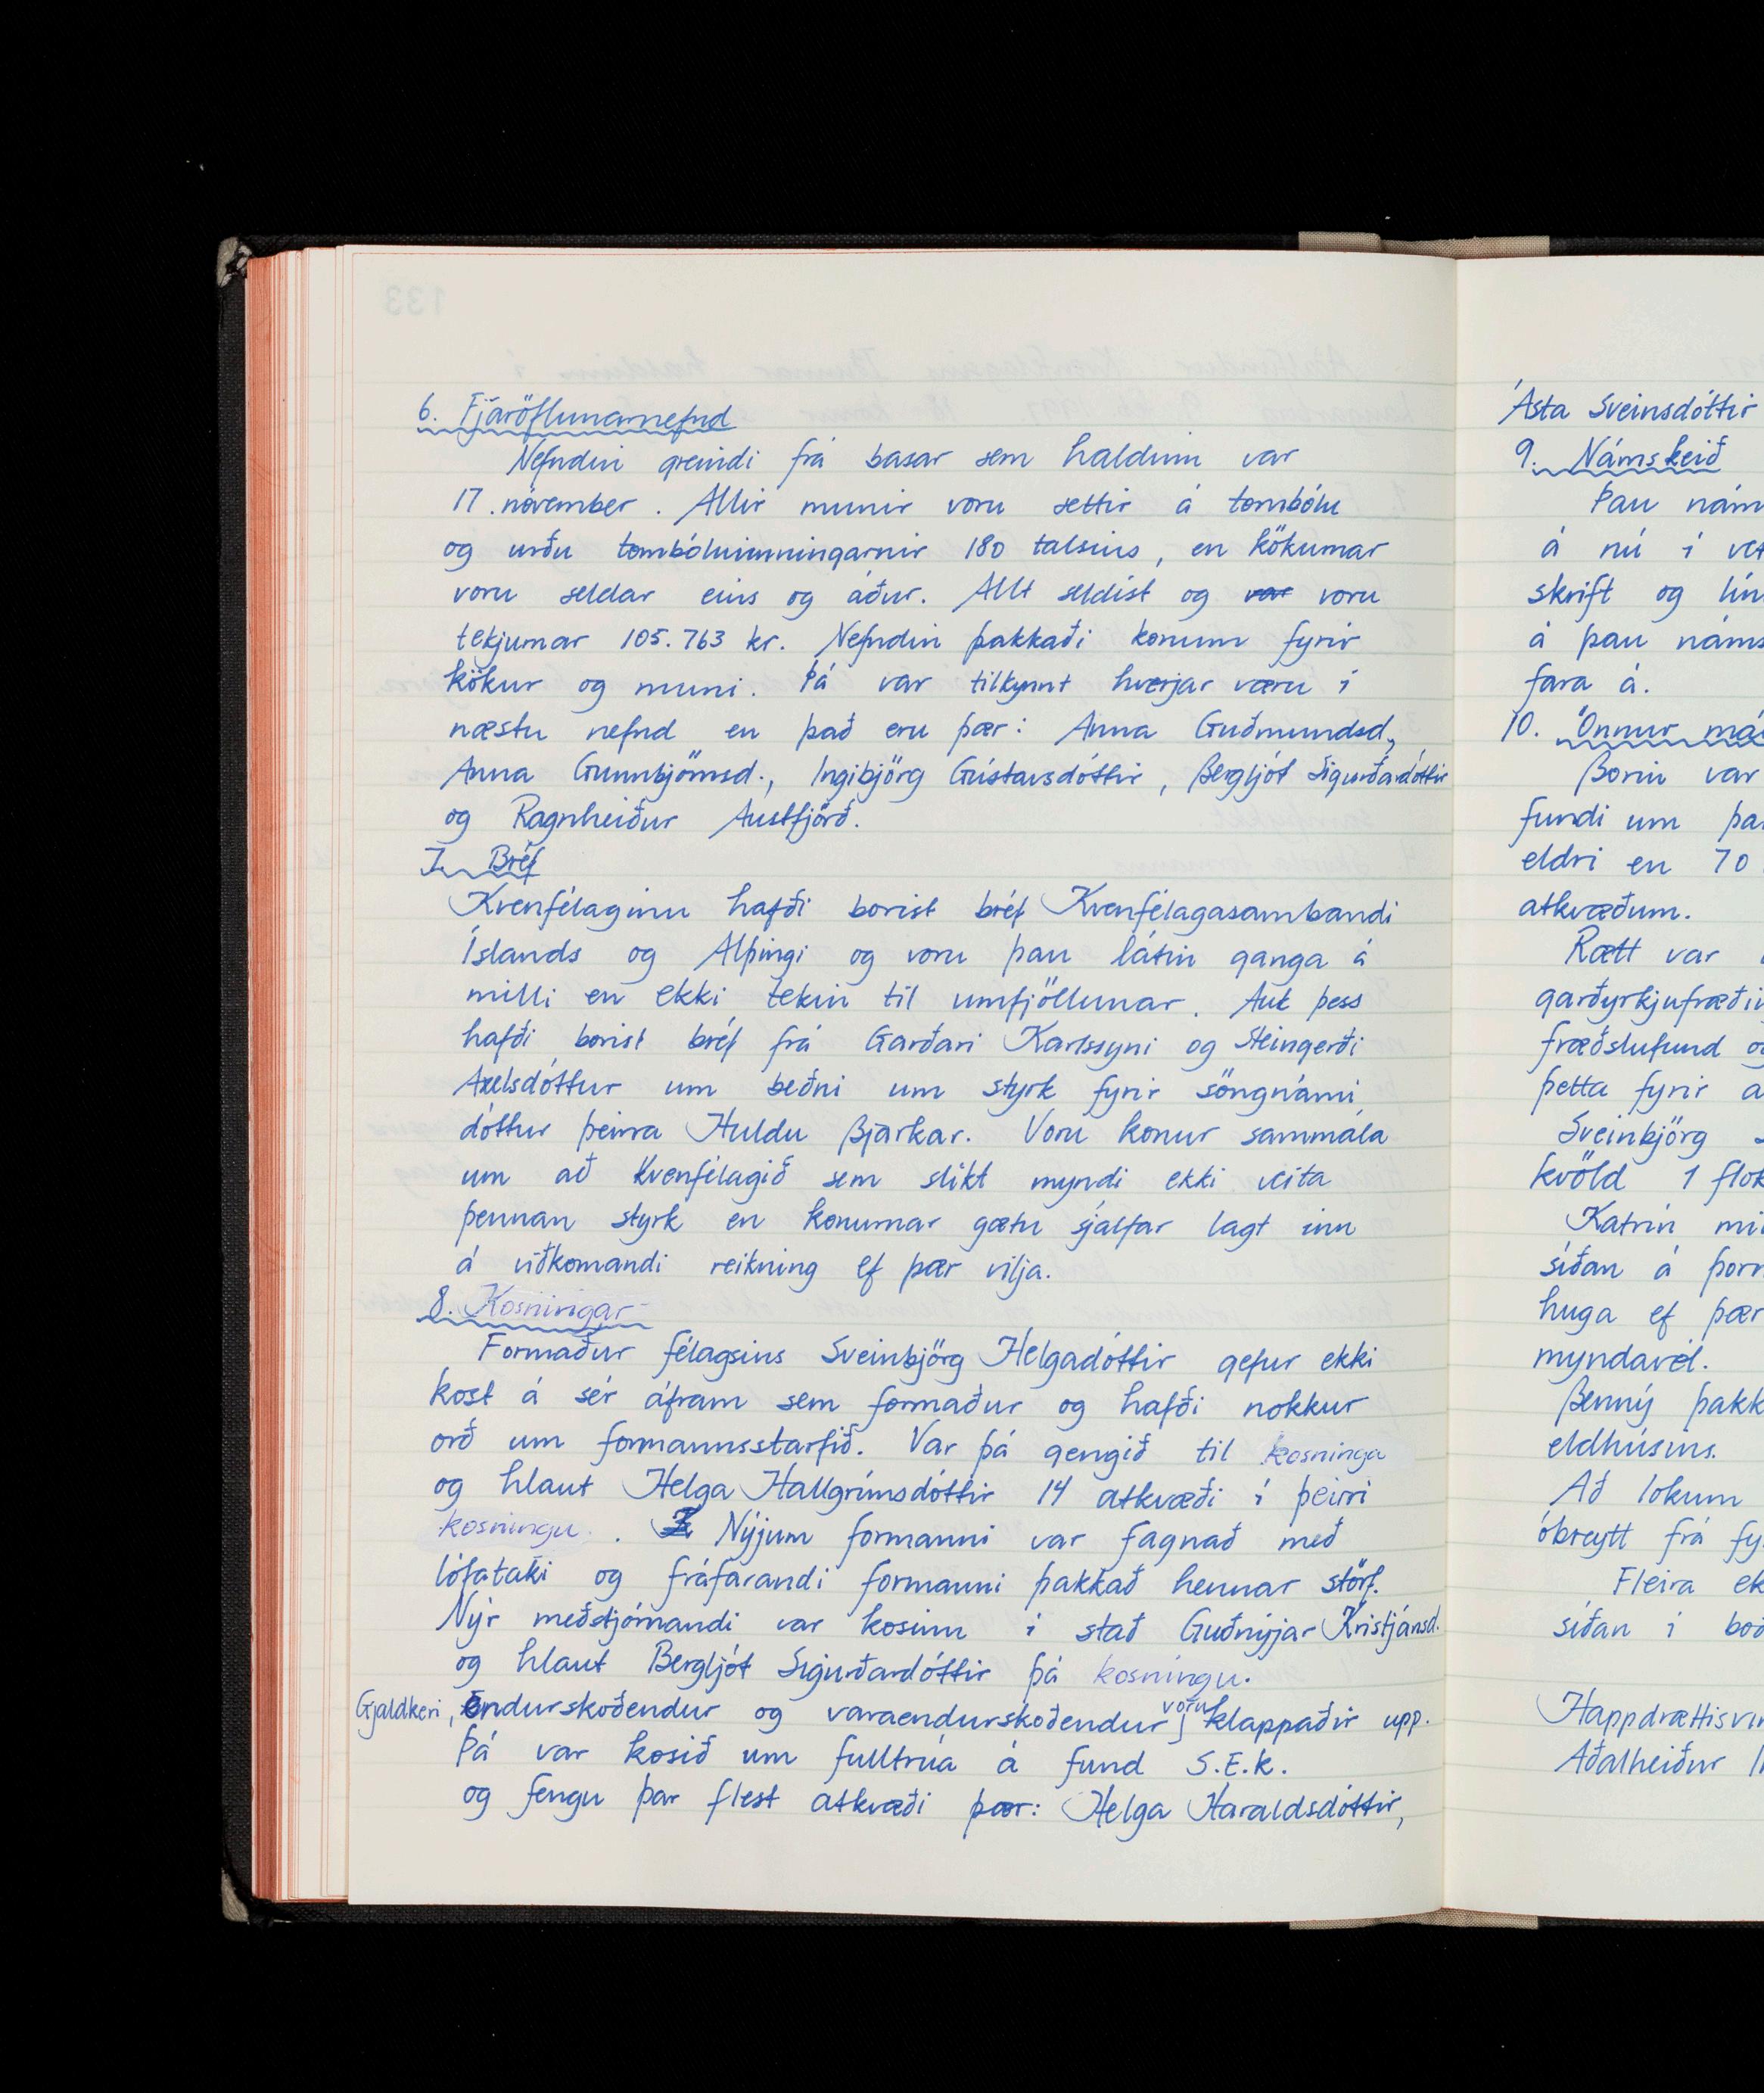 6. Fjáröflunarnefnd
Nefndin greindi frá basar sem haldinn var
17. nóvember. Allir munir voru settir á tombólu
og urðu tombóluvinningarnir 180 talsins, en kökurnar
voru seldar eins og áður. Allt seldist og var voru
tekjurnar 105.763 kr. Nefndin þakkaði konum fyrir
kökur og muni. Þá var tilkynnt hverjar væru í
næstu nefnd en það eru þær: Anna Guðmundsd,
Anna Gunnbjörnsd., Ingibjörg Gústavsdóttir, Bergljót Sigurðardóttir
og Ragnheiður Austfjörð.
7. Bréf
Kvenfélaginu hafði borist bréf Kvenfélagasambandi
Íslands og Alþingi og voru þau látin ganga á
milli en ekki tekin til umfjöllunar. Auk þess
hafði borist bréf frá Garðari Karlssyni og Steingerði
Axelsdóttur um beðni um styrk fyrir söngnámi
dóttur þeirra Huldu Bjarkar. Voru konur sammála
um að Kvenfélagið sem slíkt myndi ekki veita
þennan styrk en konurnar gætu sjálfar lagt inn
á viðkomandi reikning ef þær vilja.
8. Kosningar
Formaður félagsins Sveinbjörg Helgadóttir gefur ekki
kost á sér áfram sem formaður og hafði nokkur
orð um formannsstarfið. Var þá gengið til kosninga
og hlaut Helga Hallgrímsdóttir 14 atkvæði í þeirri
kosningu. Nýjum formanni var fagnað með
lófataki og fráfarandi formanni þakkað hennar störf.
Nýr meðstjórnandi var kosinn í stað Guðnýjar Kristjánsd.
og hlaut Bergljót Sigurðardóttir þá kosningu.
Gjaldkeri, endurskoðendur og varaendurskoðendur voru klappaðir upp.
Þá var kosið um fulltrúa á fund S.E.K.
og fengu þar flest atkvæði þær: Helga Haraldsdóttir,
Ásta Sveinsdóttir
9. Námskeið
Þau nám
á nú í vet
skrift og lín
á þau náms
fara á.
10. Önnur mál
Borin var
fundi um þa
eldri en 70
atkvæðum.
Rætt var
garðyrkjufræði
fræðslufund og
þetta fyrir a
Sveinbjörg
kvöld 1 flok
Katrín mi
síðan á þorr
huga ef þær
myndavél.
Benný þakk
eldhúsins.
Að lokum
óbreytt frá fy
Fleira ek
síðan í boð
Happdrættisvin
Aðalheiður